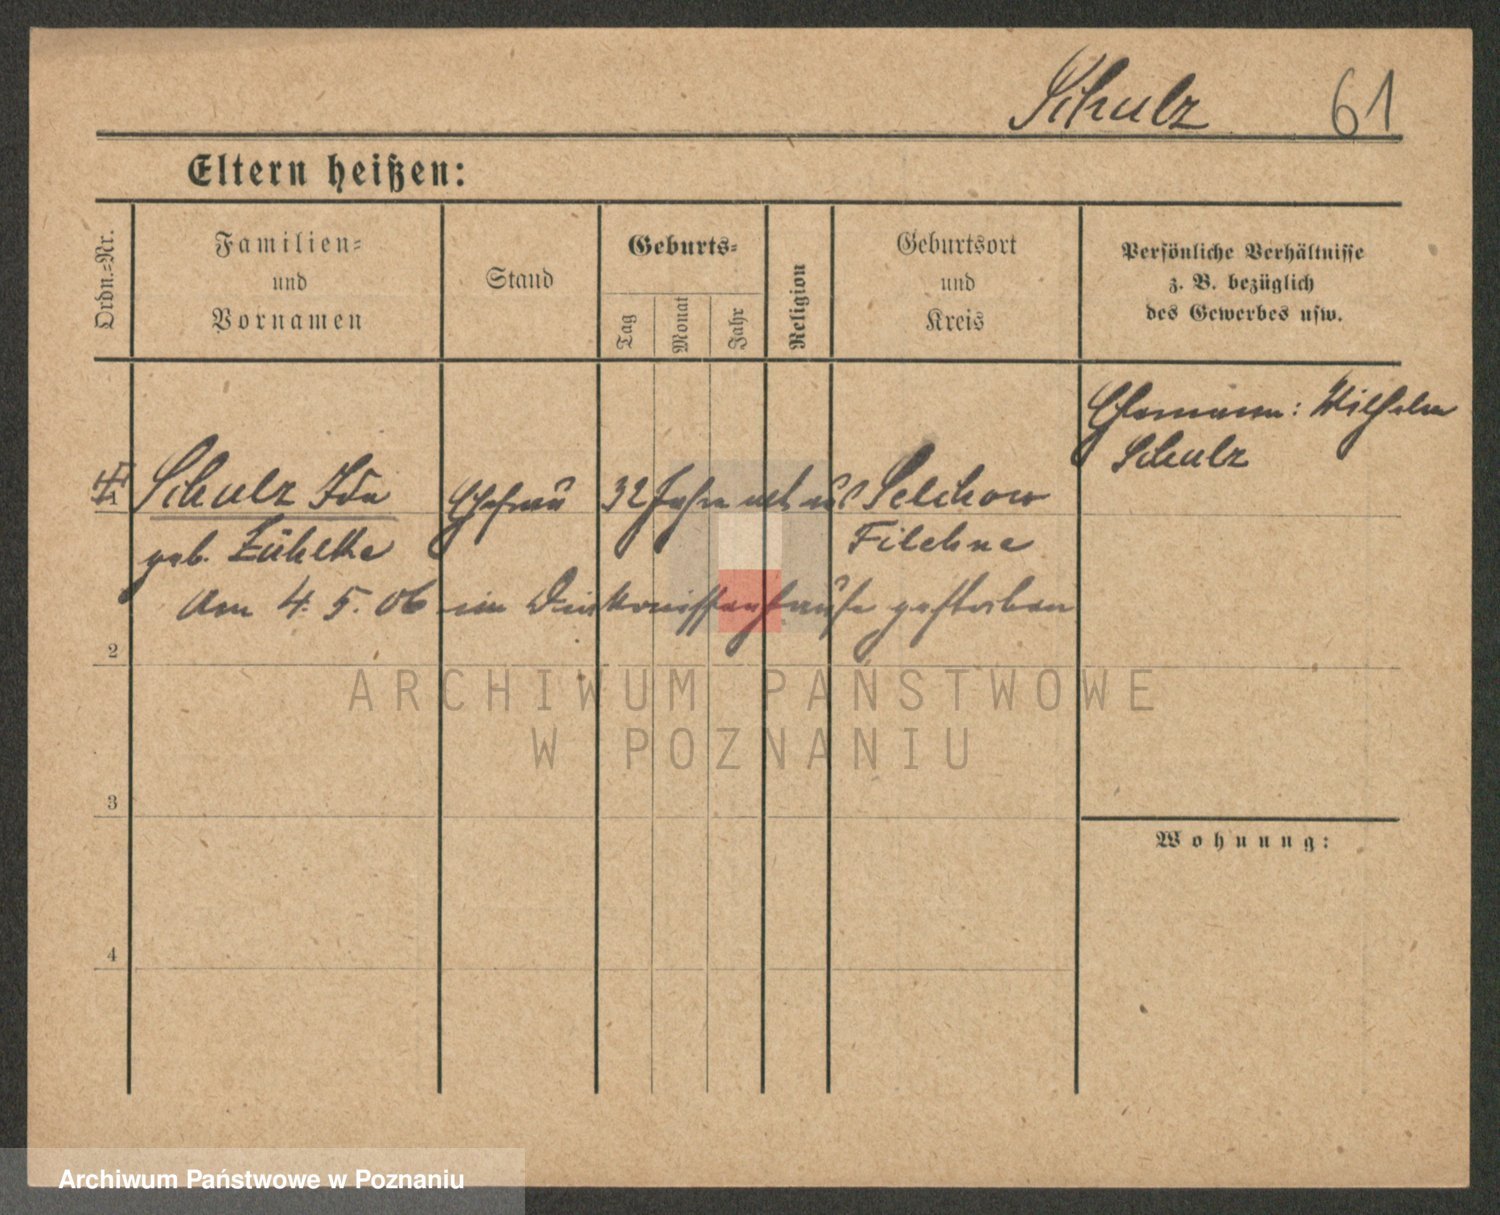 Schulz 61
Eltern heißen:
Ordn.=Nr.
Familien=
und
Vornamen
Stand
Geburts=
Tag
Monat
Jahr
Religion
Geburtsort
und
Kreis
Persönliche Verhältnisse
z. B. bezüglich
des Gewerbes usw.
Ehemann: Wilhelm
Schulz
1 Schulz Ida Ehefrau 32 Jahre alt Selchow
geb. Zühlke Filehne
Am 4. 5. 06 im Diakonissenhause gestorben
2
3
4
Wohnung:
ARCHIWUM PAŃSTWOWE
W POZNANIU
Archiwum Państwowe w Poznaniu